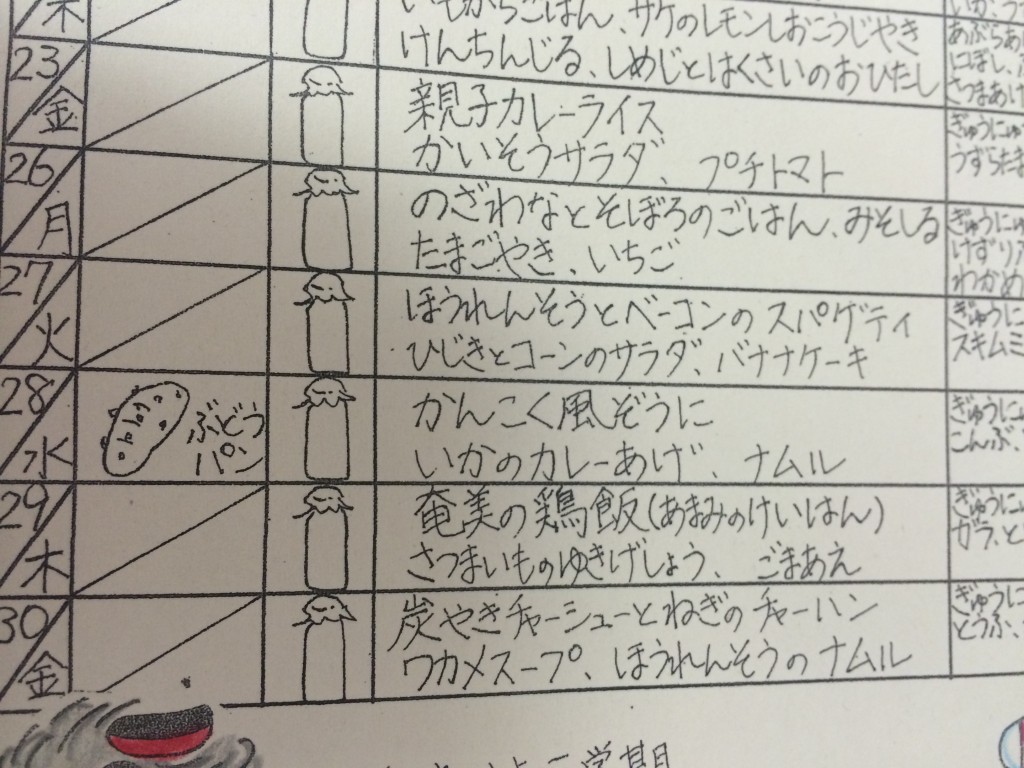 木
いもがらごはん、サケのレモンしおこうじやき
けんちんじる、しめじとはくさいのおひたし
あぶらあ
にぼし、
さつまあげ
23
金
親子カレーライス
かいそうサラダ、プチトマト
ぎゅうにゅ
うずらたま
26
月
のざわなとそぼろのごはん、みそしる
たまごやき、いちご
ぎゅうにゅ
けずり
わかめ
27
火
ほうれんそうとベーコンのスパゲティ
ひじきとコーンのサラダ、バナナケーキ
ぎゅうに
スキムミ
28
水
ぶどう
パン
かんこく風ぞうに
いかのカレーあげ、ナムル
ぎゅうに
こんぶ、
29
木
奄美の鶏飯(あまみのけいはん)
さつまいものゆきげしょう、ごまあえ
ぎゅうに
ガラ、と
30
金
炭やきチャーシューとねぎのチャーハン
ワカメスープ、ほうれんそうのナムル
ぎゅうに
とうふ、
学期